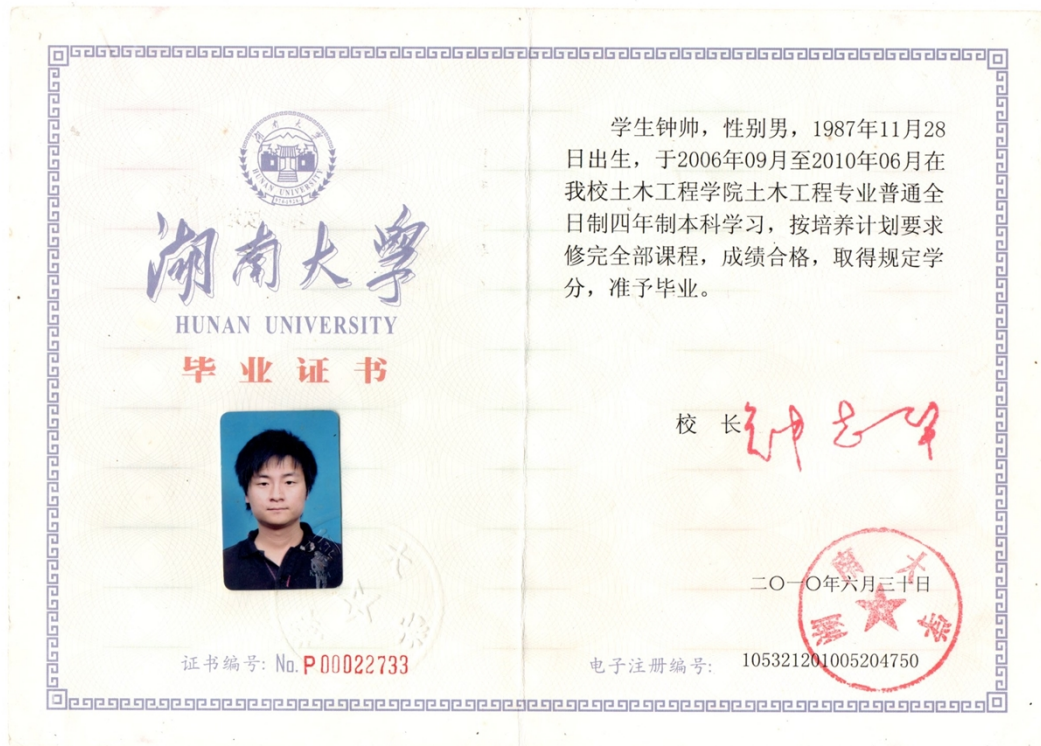 湖南大学
HUNAN UNIVERSITY
湖南大学
HUNAN UNIVERSITY
毕业证书
证书编号: No. P00022733
学生钟帅，性别男，1987年11月28
日出生，于2006年09月至2010年06月在
我校土木工程学院土木工程专业普通全
日制四年制本科学习，按培养计划要求
修完全部课程，成绩合格，取得规定学
分，准予毕业。
校 长
钟志华
二〇一〇年六月三十日
湖南大学
电子注册编号: 105321201005204750